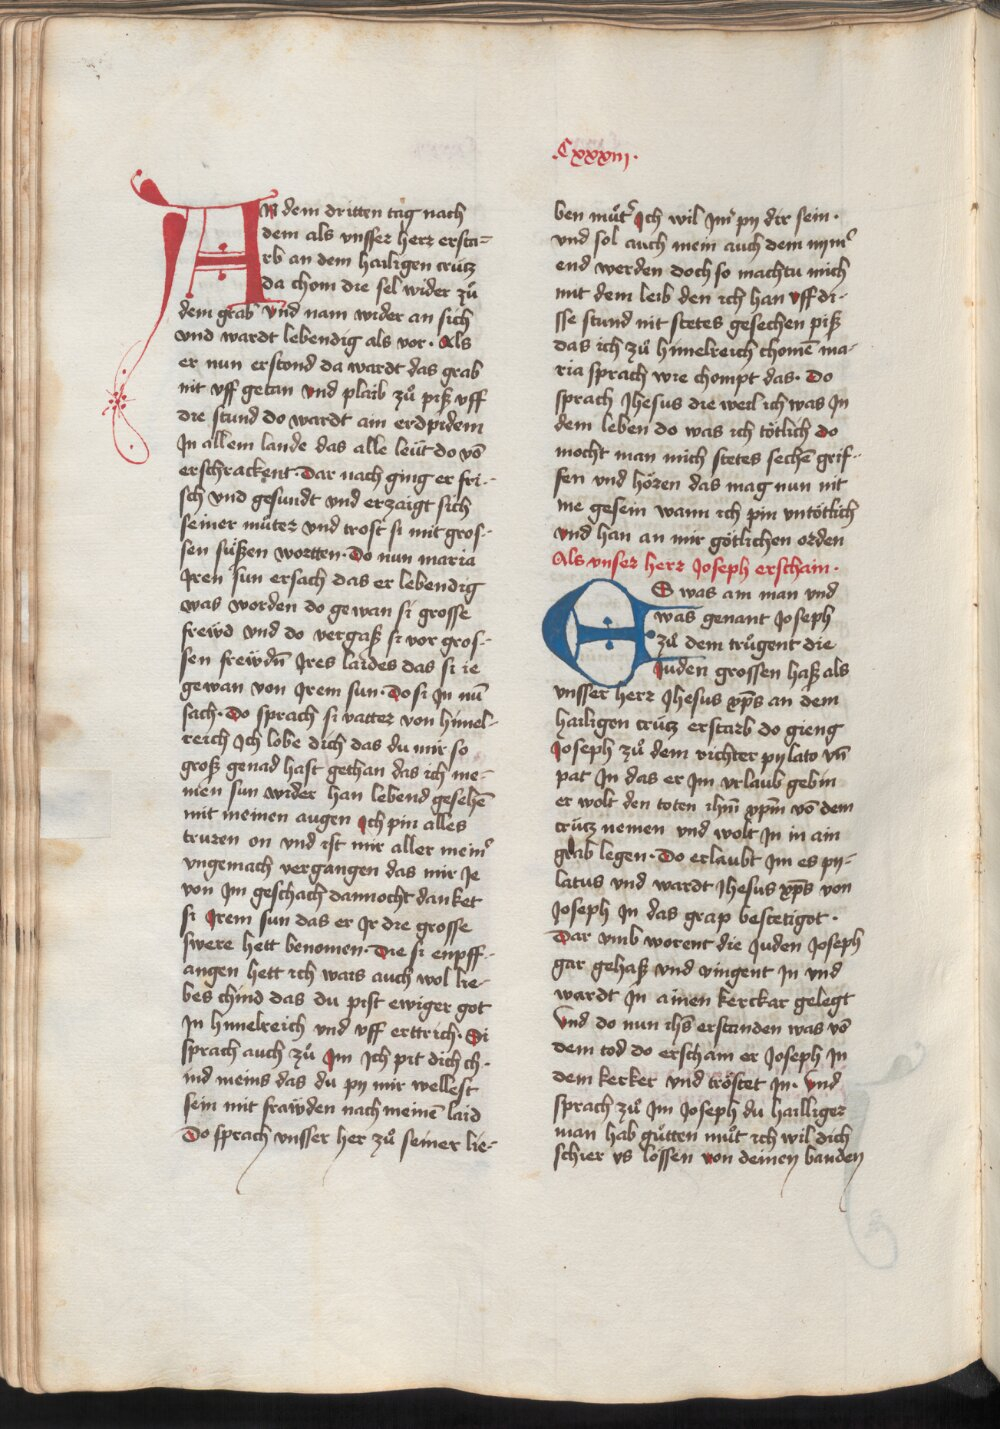 .Cxxxiij.
AN dem dritten tag nach
dem als vnsser herr ersta=
rb an dem hailigen crütz
da chom die sel wider zů
dem grab vnd nam wider an sich
vnd wardt lebendig als vor. Als
er nun erstond da wardt das grab
nit vff getan vnd plaib zů piß vff
die stund do wardt ain erdpidem
Jn allem lande das alle leüt do võ
erschrackent. Dar nach ging er fri-
sch vnd gesundt vnd erzaigt sich
seiner můter vnd trost si mit gros-
sen süßen wortten. Do nun maria
Jren sun ersach das er lebendig
was worden do gewan si grosse
frewd vnd do vergaß si vor gros-
sen frewdñ Jres laides das si ie
gewan von Jrem sun. Do si Jn nũ
sach. Do sprach si vatter von himel-
reich Jch lobe dich das du mir so
groß genad hast gethan das ich mei-
nen sun wider han lebend gesehẽ
mit meinen augen Jch pin alles
truren on vnd ist mir aller mein᾽
vngemach vergangen das mir Je
von Jm geschach dannocht danket
si Jrem sun das er Jr die grosse
swere hett benomen. Die si enpff-
angen hett ich wais auch wol lie-
bes chind das du pist ewiger got
Jn himelreich vnd vff erttrich. Si
sprach auch zů Jm Jch pit dich ch-
ind meins das du py mir wellest
sein mit fräwden nach meinẽ laid
Do sprach vnsser her zů seiner lie-
ben můt᾽ Jch wil Jm᾽ py dir sein.
vnd sol auch mein auch dem nym᾽
end werden doch so machtu mich
mit dem leib den ich han vff di-
sse stund nit stetes gesechen piß
das ich zů himelreich chomẽ ma-
ria sprach wie chompt das. Do
sprach Jhesus die weil ich was Jn
dem leben do was ich tötlich do
mocht man mich stetes sechẽ grif-
fen vnd hören das mag nun nit
me gesein wann ich pin vntötlich
vnd han an mir götlichen orden
Als vnser herr Joseph erschain.
ES was ain man vnd
was genant Joseph
zů dem trůgent die
Juden grossen haß als
vnsser herr Jhesus xp̃s an dem
hailigen crütz erstarb do gieng
Joseph zů dem richter pylato vñ
pat Jn das er Jm vrlaub gebin
er wolt den toten ihm̃ xpm̃ võ dem
crütz nemen vnd wolt Jn in ain
grab legen. Do erlaubt Jm es py=
latus vnd wardt Jhesus xp̃s von
Joseph Jn das grap bestetigot.
Dar vmb worent die Juden Joseph
gar gehaß vnd vingent Jn vnd
wardt Jn ainen kerckar gelegt
Vnd do nun ihs̃ erstanden was võ
dem tod do erschain er Joseph Jn
dem kerker vnd tröstet Jn. Vnd
sprach zů Jm Joseph du hailliger
man hab gůtten můt ich wil dich
schier vs lössen von deinen banden